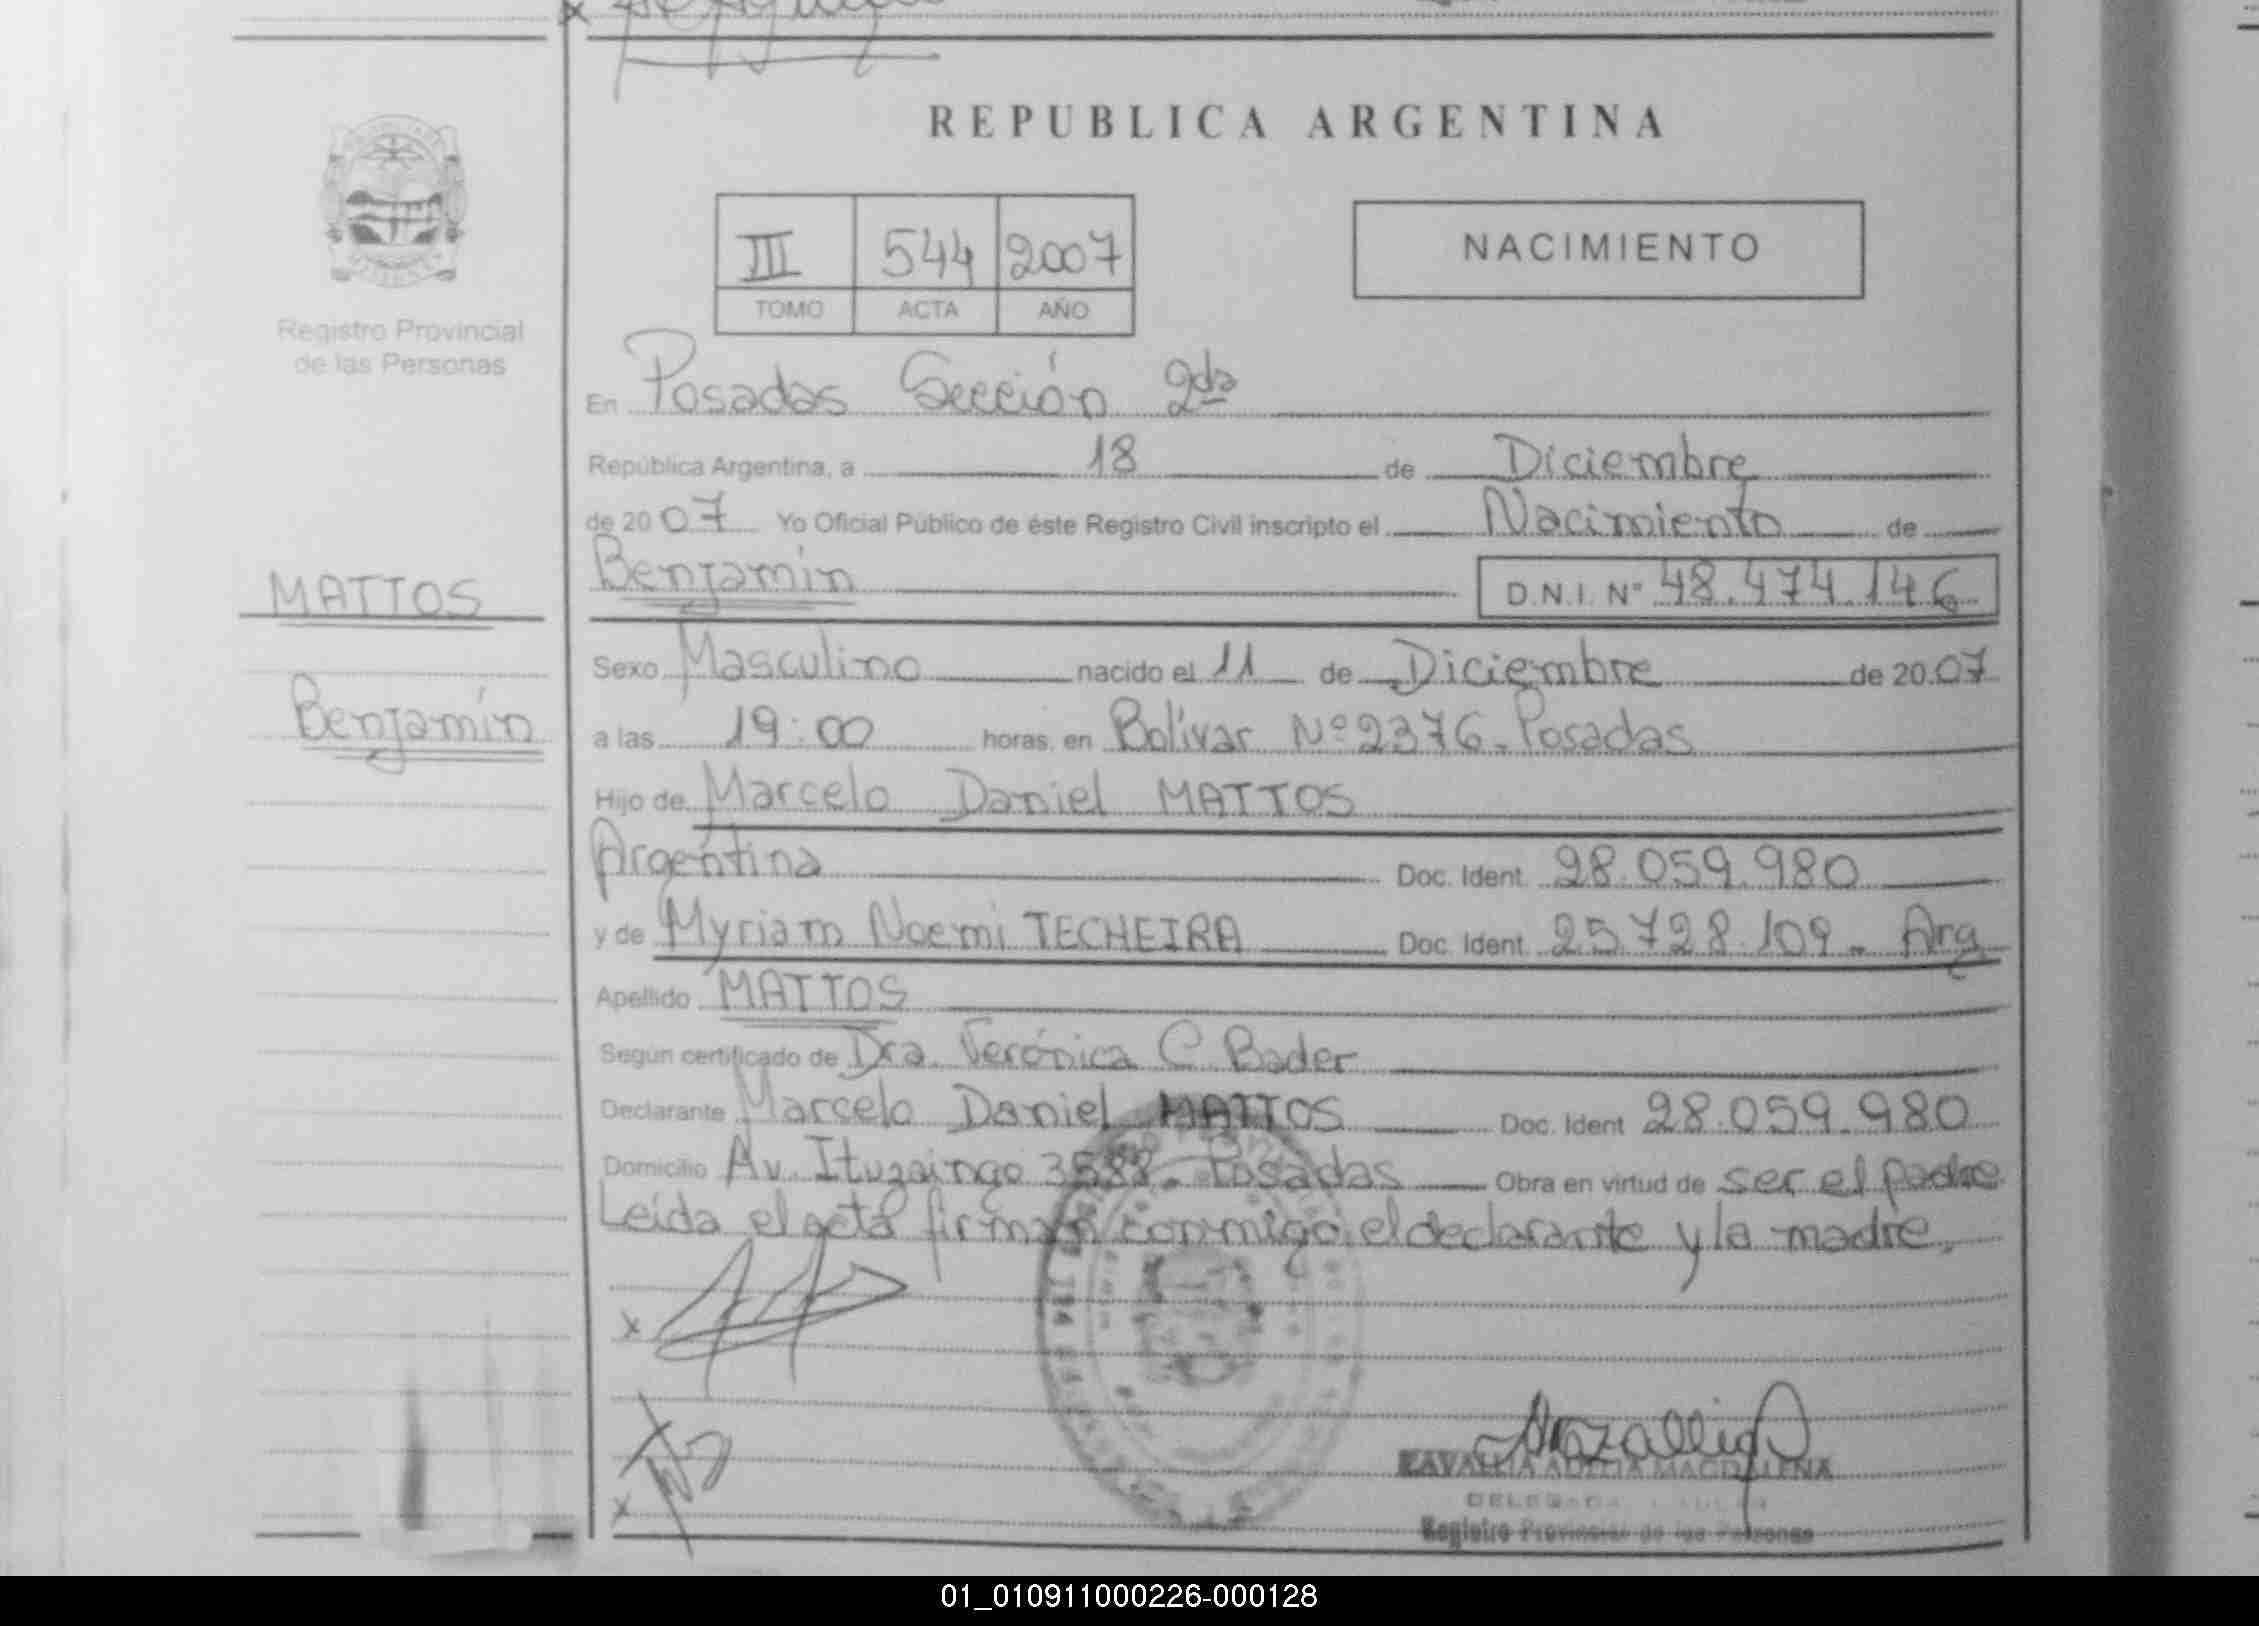 REPUBLICA ARGENTINA
III 544 2007
TOMO ACTA AÑO
NACIMIENTO
Registro Provincial
de las Personas
En Posadas Sección 2da
República Argentina, a 18 de Diciembre
de 2007 Yo Oficial Público de éste Registro Civil inscripto el Nacimiento de
Benjamín D.N.I. Nº 48.474.146
MATTOS
Benjamín
Sexo Masculino nacido el 11 de Diciembre de 2007
a las 19:00 horas, en Bolívar Nº 2376 - Posadas
Hijo de Marcelo Daniel MATTOS
Argentina Doc. Ident. 28.059.980
y de Myriam Noemi TECHEIRA Doc. Ident. 25.728.109 - Arg
Apellido MATTOS
Según certificado de Dra. Verónica C. Bader
Declarante Marcelo Daniel MATTOS Doc. Ident 28.059.980
Domicilio Av. Ituzaingo 3588 - Posadas Obra en virtud de ser el padre
Leída el acta firman conmigo el declarante y la madre.
x
x
MAGDALENA
DELEGADA
Registro Provincial de las Personas
01_010911000226-000128